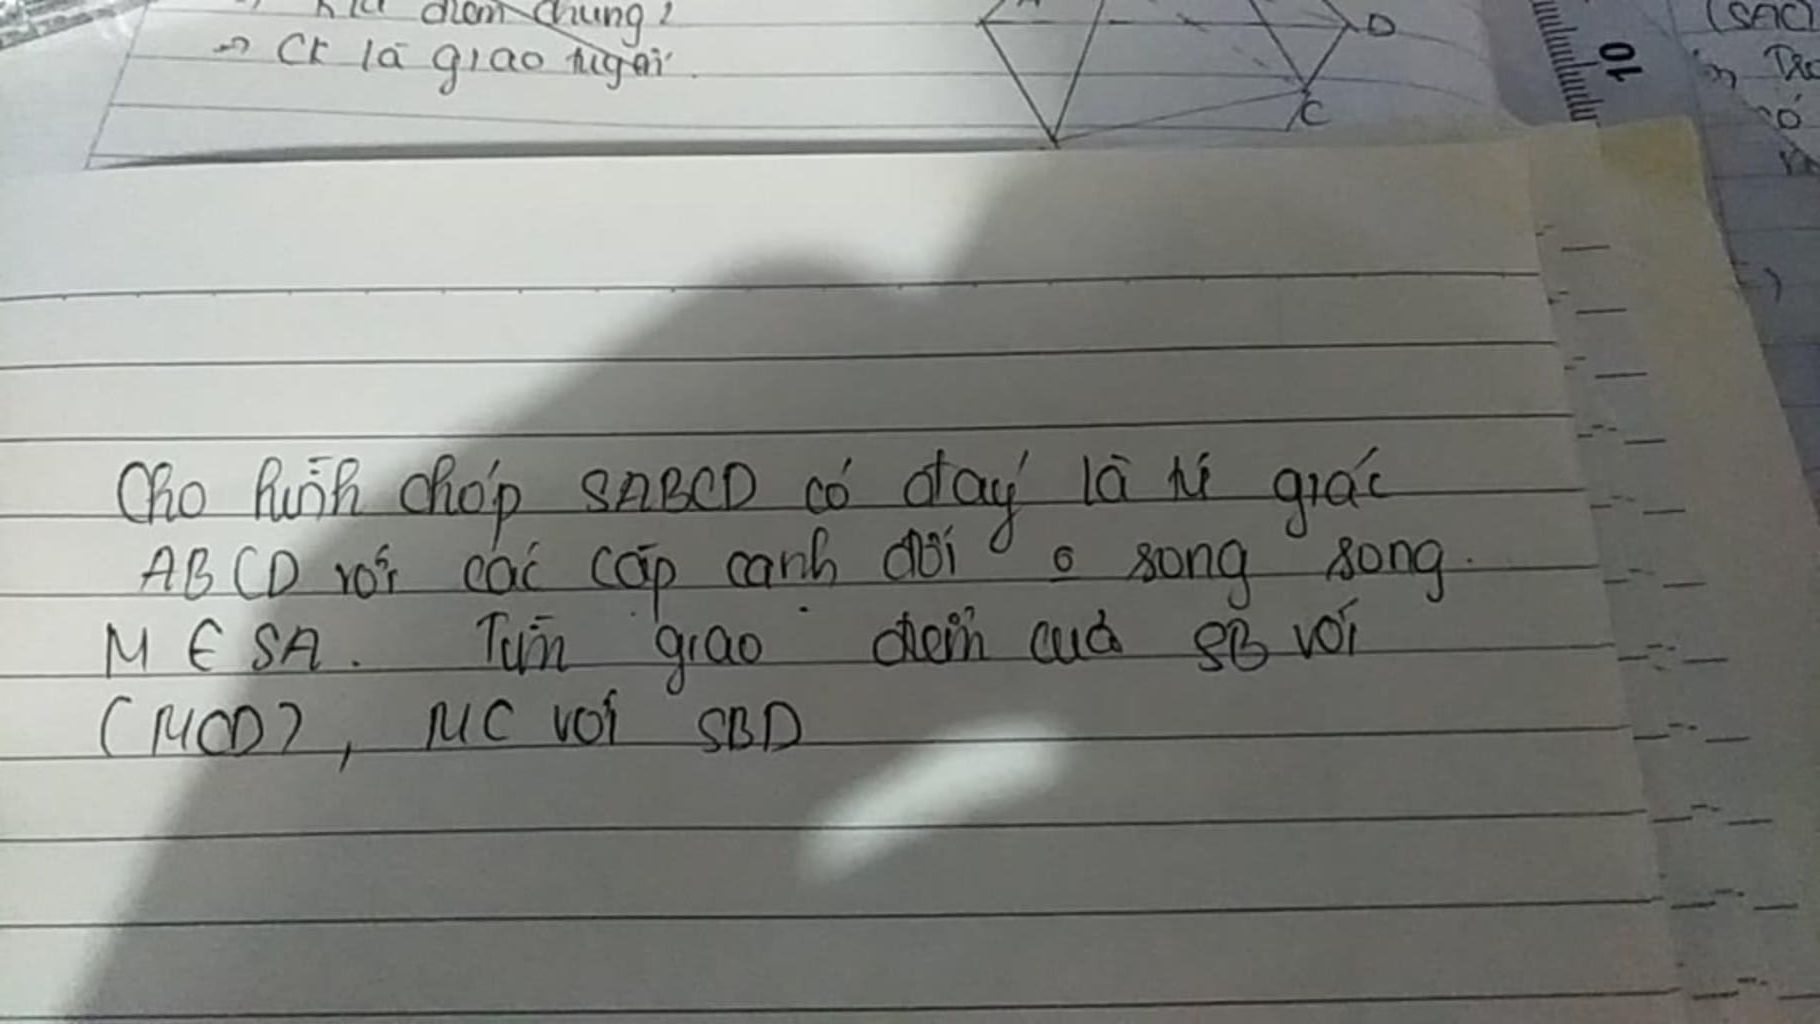 điểm chung?
→ CK là giao tuyến.
D
C
10
(SAC)
Cho hình chóp SABCD có đáy là tứ giác
ABCD với các cặp cạnh đối o song song.
M ∈ SA. Tìm giao điểm của SB với
(MCD), MC với SBD